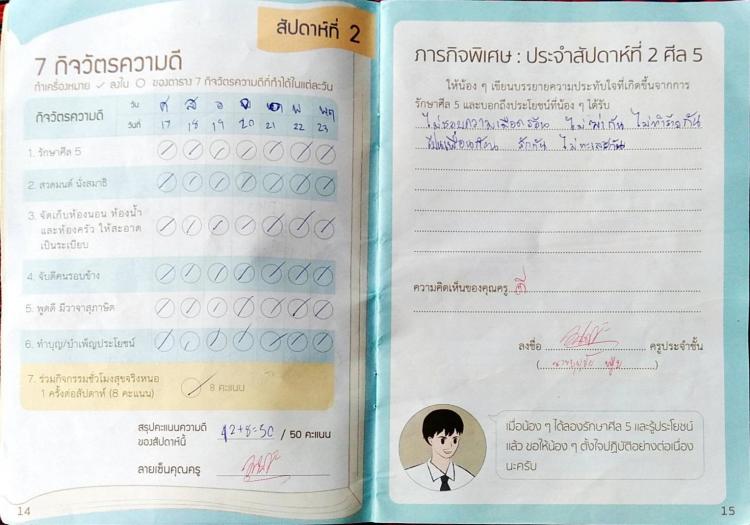 สัปดาห์ที่ 2
7 กิจวัตรความดี
ทำเครื่องหมาย ✓ ลงใน ○ ของตาราง 7 กิจวัตรความดีที่ทำได้ในแต่ละวัน
กิจวัตรความดี
วัน ศ ส อ จ อ พ พฤ
วันที่ 17 18 19 20 21 22 23
1. รักษาศีล 5
2. สวดมนต์ นั่งสมาธิ
3. จัดเก็บห้องนอน ห้องน้ำ
และห้องครัว ให้สะอาด
เป็นระเบียบ
4. จับดีคนรอบข้าง
5. พูดดี มีวาจาสุภาษิต
6. ทำบุญ/บำเพ็ญประโยชน์
7. ร่วมกิจกรรมชั่วโมงสุขจริงหนอ
1 ครั้งต่อสัปดาห์ (8 คะแนน)
8 คะแนน
สรุปคะแนนความดี
ของสัปดาห์นี้
42+8=50 / 50 คะแนน
ลายเซ็นคุณครู
14
ภารกิจพิเศษ : ประจำสัปดาห์ที่ 2 ศีล 5
ให้น้อง ๆ เขียนบรรยายความประทับใจที่เกิดขึ้นจากการ
รักษาศีล 5 และบอกถึงประโยชน์ที่น้อง ๆ ได้รับ
ไม่ชอบความเดือดร้อน ไม่ฆ่ากัน ไม่ทำร้ายกัน
รักกัน ไม่ทะเลาะกัน
ความคิดเห็นของคุณครู ดี
ลงชื่อ ครูประจำชั้น
เมื่อน้อง ๆ ได้ลองรักษาศีล 5 และรู้ประโยชน์
แล้ว ขอให้น้อง ๆ ตั้งใจปฏิบัติอย่างต่อเนื่อง
นะครับ
15